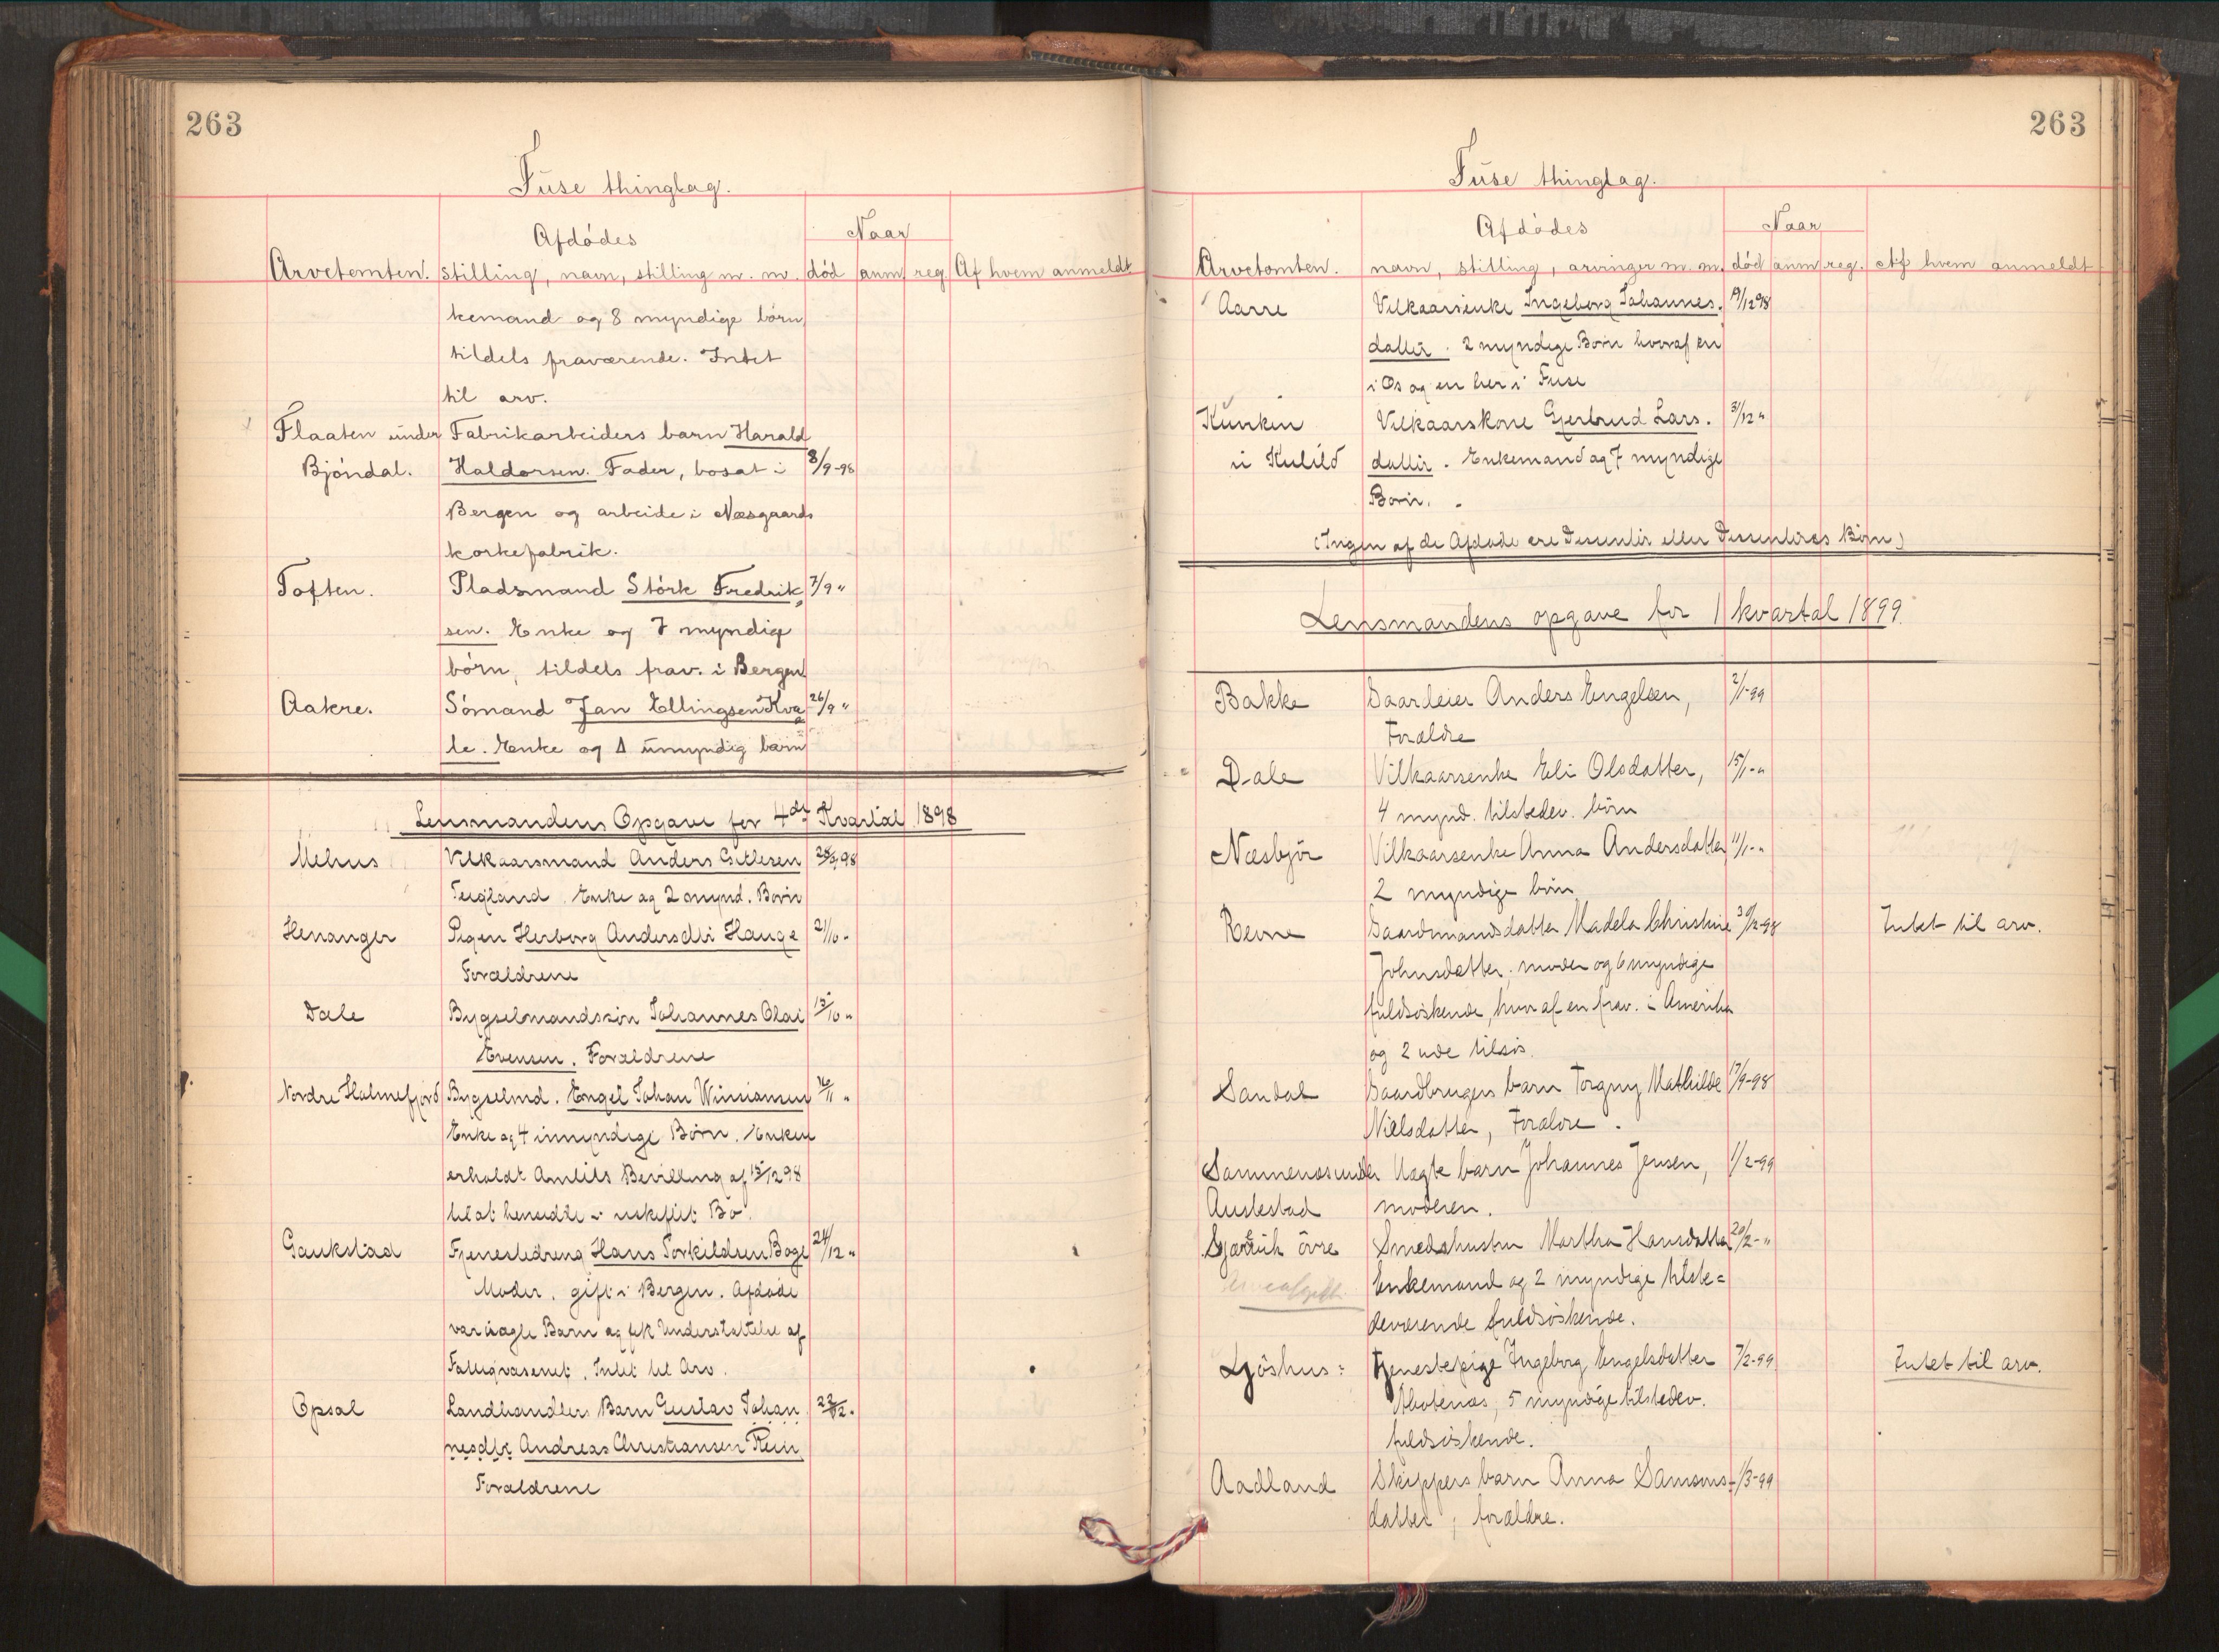 263
Fuse thinglag.
Afdödes
Naar
Arvetomten. stilling, navn, stilling m. m. död anm. reg. Af hvem anmeldt
kemand og 8 myndige börn,
tildels fraværende. Intet
til arv.
Flaaten under Fabrikarbeiders barn Harald
Bjöndal. Haldorsen. Fader, bosat i 8/9-98
Bergen og arbeide i Næsgaards
korkefabrik.
Toften. Pladsmand Störk Fredrik, 7/9 "
sen. Enke og 7 myndige
börn, tildels frav. i Bergen
Aakre. Sömand Jan Ellingsen Kva 26/9 "
le. Enke og 1 umyndig barn
Lensmandens Opgave for 4de Kvartal 1898
Mehus Vilkaarsmand Anders 98
Teigland. Enke og 2 mynd. Börn
Henanger Pigen Herborg Andersdtr Hauge 21/10 "
Forældrene
Dale Bygselmandssön Johannes Olai 13/10 "
Evensen. Forældrene
Nordre Holmefjord Bygselmd. Engel Johan 16/11 "
Enke og 4 umyndige Börn. Enken
erholdt Amtets Bevilling af 15/12 98
til at hensidde i uskiftet Bo.
Gaukstad Tjenestedreng Hans Torkildsen Boge 24/12 "
Moder, gift i Bergen. Afdöde
var uægte Barn og fik Understöttelse af
Fattigvæsenet. Intet til Arv.
Opsal Landhandlers Barn Gustav Johan 22/12 "
nesdtr Andreas Christiansen
Forældrene
263
Fuse thinglag.
Afdödes
Naar
Arvetomten. navn, stilling, arvinger m. m. död anm reg. Af hvem anmeldt
Aarre Vilkaarsenke Ingeborg Johannes. 19/12 98
datter. 2 myndige Börn hvoraf en
i Os og en her i Fuse
Kunken Vilkaarskone Gjertrud Lars. 3/12 "
datter. Enkemand og 7 myndige
Börn.
(Ingen af de Afdöde ere Dissenter eller Dissenteres Börn)
Lensmandens opgave for 1 kvartal 1899.
Bakke Gaardeier Anders Engelsen, 2/1-99
Forældre
Dale Vilkaarsenke Eli Olsdatter, 15/1- "
4 mynd. tilstedev. börn
Næsbjör Vilkaarsenke Anna Andersdatter 11/1- "
2 myndige börn
Revne Gaardmandsdatter Madela Christine 30/12-98 Intet til arv.
Johnsdatter. moder og 6 myndige
fuldsöskende, hvor af en frav. i Amerika
og 2 ude tilsös.
Sandal Gaardbrugers barn Torgny Mathilde 17/9-98
Nielsdatter, Forældre.
Sammenæs under Uægte barn Johannes Jensen, 1/2-99
Austestad moderen.
övre Smedshustru Martha Hansdatter 20/2- "
Enkemand og 2 myndige tilste=
deværende fuldsöskende.
Ljöshus: Tjenestepige Ingeborg Engelsdatter 7/2-99 Intet til arv.
5 myndige tilstedev.
fuldsöskende.
Aadland Skippers barn Anna Samsons- 1/3-99
datter, forældre.